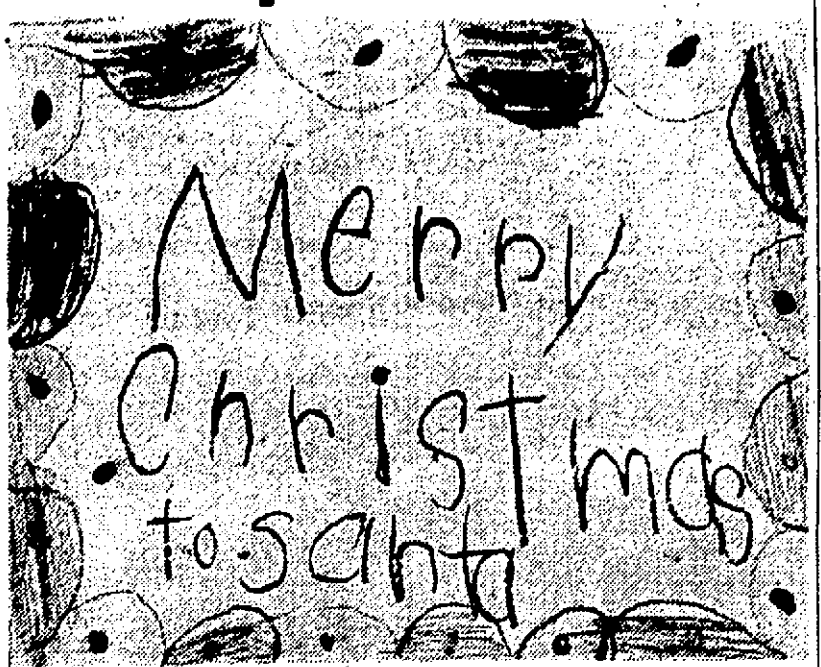 Merry
Christmas
to santa